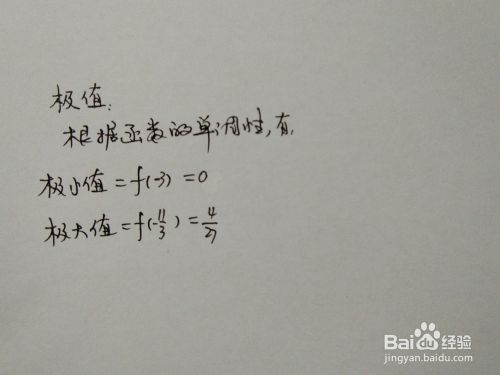 极值:
根据函数的单调性,有,
极小值=f(-3)=0
极大值=f(-11/3)=4/27
Bai du 经验
jingyan.baidu.com